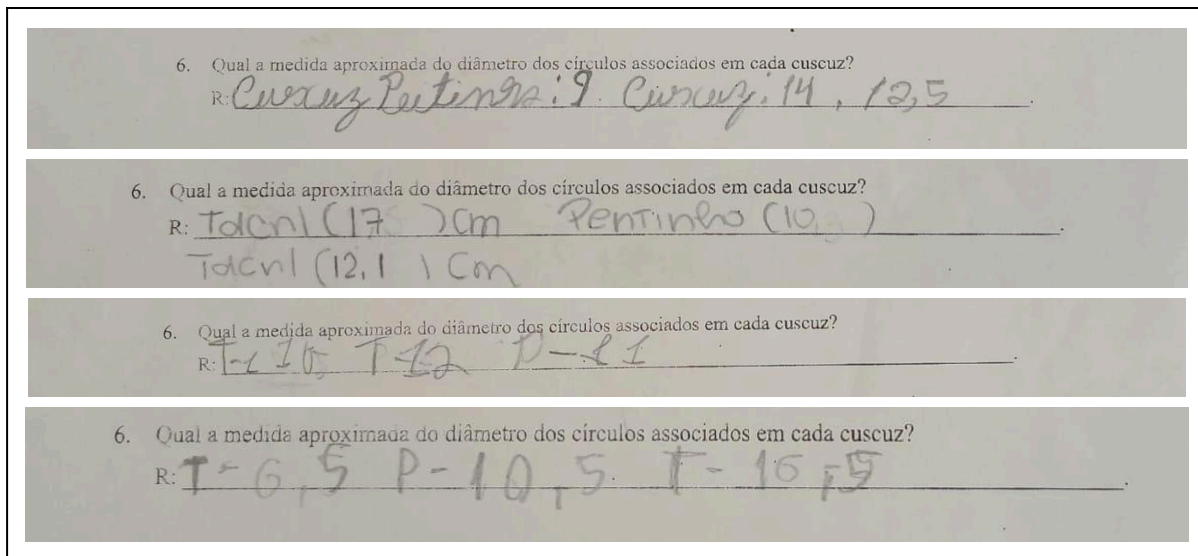 6. Qual a medida aproximada do diâmetro dos círculos associados em cada cuscuz?
R: Cuscuz Peitinho: 9. Cuscuz: 14, 12,5
6. Qual a medida aproximada do diâmetro dos círculos associados em cada cuscuz?
R: (17 ) Cm Pentinho (10, )
(12,1 ) Cm
6. Qual a medida aproximada do diâmetro dos círculos associados em cada cuscuz?
R: T-12 P-11
6. Qual a medida aproximada do diâmetro dos círculos associados em cada cuscuz?
R: T-6,5 P-10,5. T-16,5